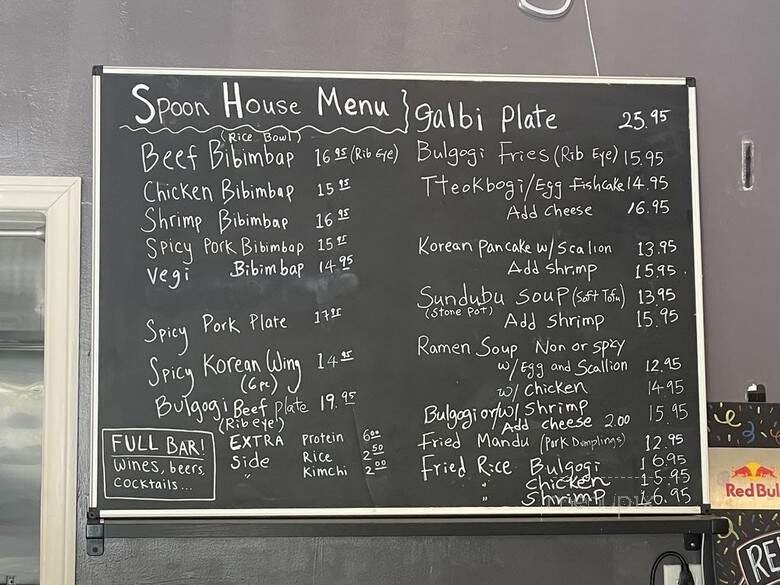 Spoon House Menu
(Rice Bowl)
Beef Bibimbap 16.95 (Rib Eye)
Chicken Bibimbap 15.95
Shrimp Bibimbap 16.95
Spicy Pork Bibimbap 15.95
Vegi Bibimbap 14.95
Spicy Pork Plate 17.95
Spicy Korean Wing 14.95
(6pc)
Bulgogi Beef Plate 19.95
(Rib Eye)
EXTRA Protein 6.00
Side Rice 2.50
" Kimchi 2.00
FULL BAR!
Wines, beers,
cocktails...
Galbi Plate 25.95
Bulgogi Fries (Rib Eye) 15.95
Tteokbogi/Egg Fishcake 14.95
Add cheese 16.95
Korean Pancake w/ Scalion 13.95
Add shrimp 15.95
Sundubu Soup (Soft Tofu) 13.95
(Stone Pot) Add shrimp 15.95
Ramen Soup Non or spicy
w/ Egg and Scallion 12.95
w/ Chicken 14.95
Bulgogi or w/ Shrimp 15.95
Add cheese 2.00
Fried Mandu (Pork Dumplings) 12.95
Fried Rice Bulgogi 16.95
" Chicken 15.95
" Shrimp 16.95
Red Bul
RE